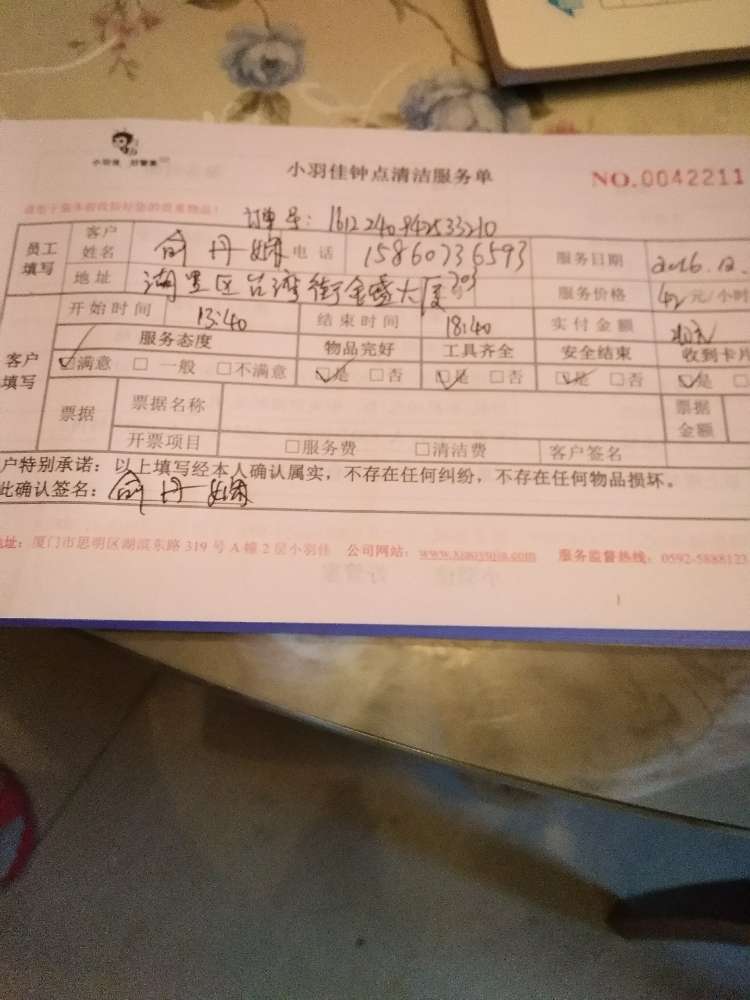 小羽佳 好管家
小羽佳钟点清洁服务单
NO.0042211
订单号: 1612240942533210
员工填写 客户姓名 俞丹 电话 15860736593 服务日期 2016.12.
地址 湖里区台湾街金盛大厦703 服务价格 42元/小时
开始时间 13:40 结束时间 18:40 实付金额
客户填写 服务态度 物品完好 工具齐全 安全结束 收到卡片
☑满意 □一般 □不满意 ☑是 □否 ☑是 □否 ☑是 □否 ☑是 □
票据 票据名称 票据金额
开票项目 □服务费 □清洁费 客户签名
户特别承诺：以上填写经本人确认属实，不存在任何纠纷，不存在任何物品损坏。
此确认签名： 俞丹
址：厦门市思明区湖滨东路 319 号 A 幢 2 层小羽佳 公司网站：www.xiaoyujia.com 服务监督热线：0592-5888123